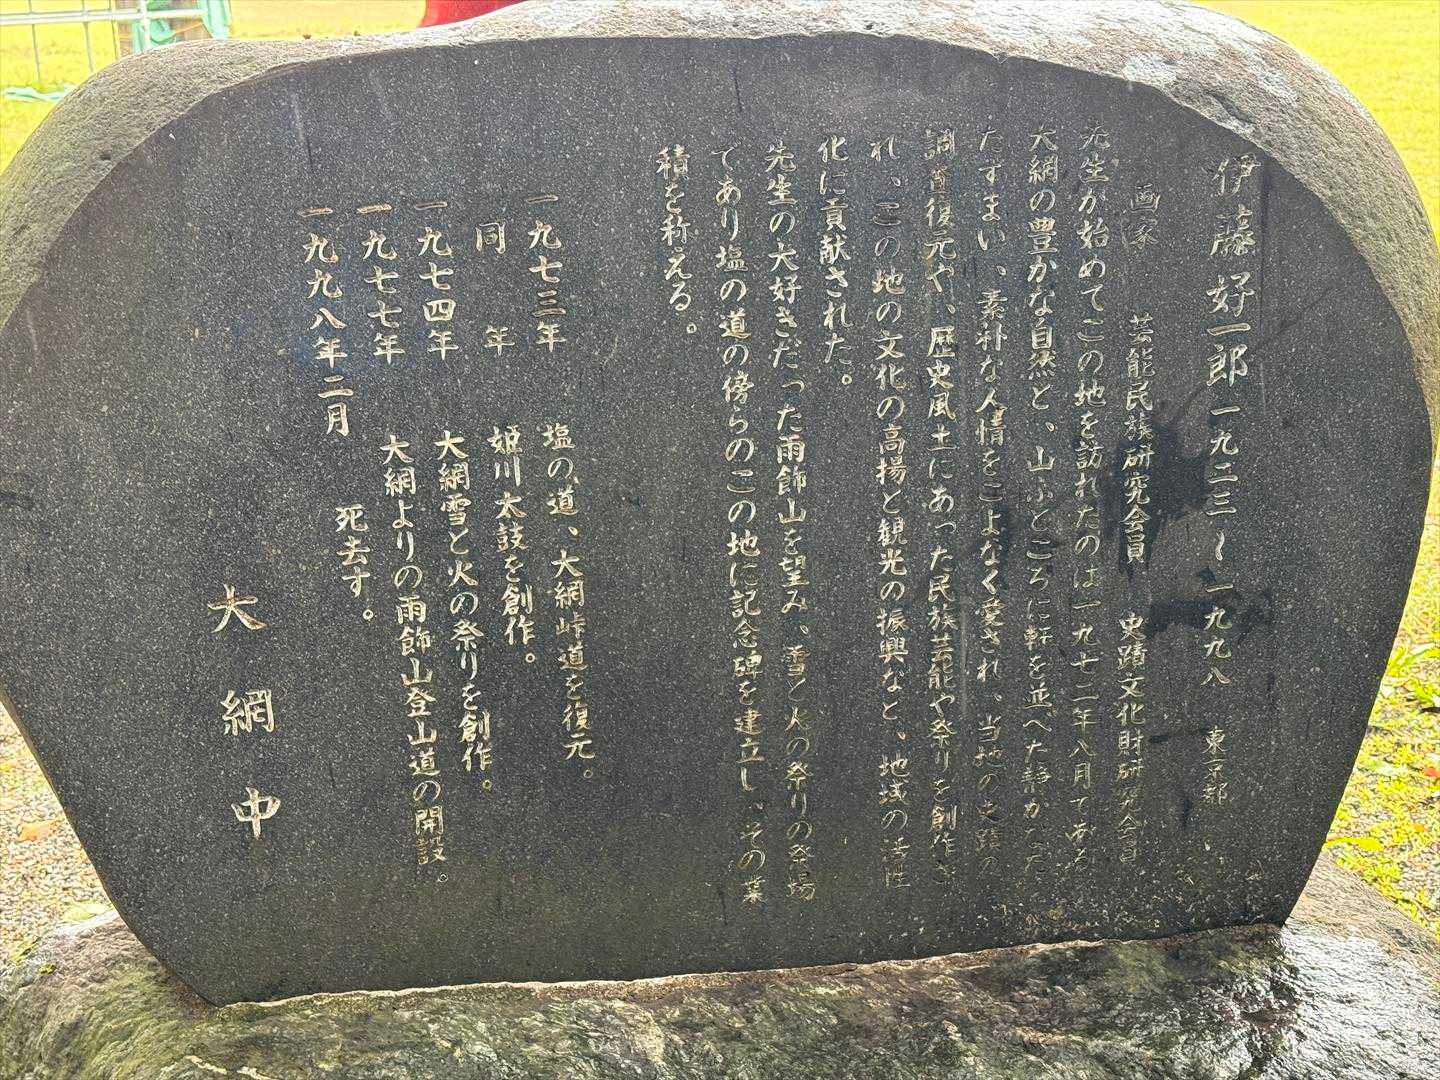 伊藤好一郎 一九二三〜一九九八 東京都
画家 芸能民族研究会員 史蹟文化財研究会員
先生が始めてこの地を訪れたのは一九七二年八月である
大網の豊かな自然と、山ふところに軒を並べた静かなた
たずまい、素朴な人情をこよなく愛され、当地の史蹟の
調査復元や、歴史風土にあった民族芸能や祭りを創作さ
れ、この地の文化の高揚と観光の振興など、地域の活性
化に貢献された。
先生の大好きだった雨飾山を望み、雪と火の祭りの祭場
であり塩の道の傍らのこの地に記念碑を建立し、その業
積を称える。
一九七三年 塩の道、大網峠道を復元。
同 年 姫川太鼓を創作。
一九七四年 大網雪と火の祭りを創作。
一九七七年 大網よりの雨飾山登山道の開設。
一九九八年二月 死去す。
大網中